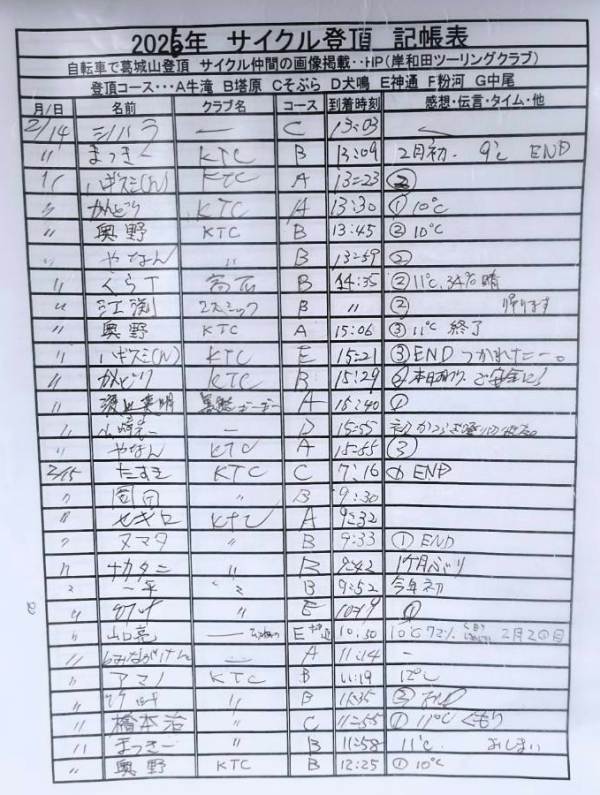 2026年 サイクル登頂 記帳表
自転車で葛城山登頂 サイクル仲間の画像掲載‥HP(岸和田ツーリングクラブ)
登頂コース‥･A牛滝 B塔原 Cそぶら D犬鳴 E神通 F粉河 G中尾
月/日 名前 クラブ名 コース 到着時刻 感想・伝言・タイム・他
2/14 シバラ ー C 13:03
〃 まっきー KTC B 13:09 2月初. 9℃ END
〃 ハギスミ(ん) KTC A 13:23 ②
〃 かんどり KTC A 13:30 ① 10℃
〃 奥野 KTC B 13:45 ② 10℃
〃 やなん 〃 B 13:59 ②
〃 くらT 高石 B 14:35 ② 11℃ 34% 晴
〃 江渕 コスミック B 〃 ② 帰ります
〃 奥野 KTC A 15:06 ③ 11℃ 終了
〃 ハギスミ(ん) KTC E 15:21 ③ END つかれたー。
〃 かんどり KTC B 15:29 ご安全に!
〃 A 15:40 ①
〃 ー D 15:55
〃 やなん KTC A 15:55 ③
2/15 たすき KTC C 7:16 ① END
〃 〃 B 9:30
〃 セキロ KTC A 9:32
〃 ヌマタ 〃 B 9:33 ① END
〃 ナカタニ 〃 B 9:42 1ヶ月ぶり
〃 一平 〃 B 9:52 今年初
〃 〃 E 10:19 ①
〃 山口亮 E神通 10:30 10℃ 72% 2月2回目
〃 ー A 11:14 -
〃 アマノ KTC B 11:19 12℃
〃 〃 B 11:35
〃 橋本治 〃 C 11:55 ① 11℃ くもり
〃 まっきー 〃 B 11:58 11℃ おしまい
〃 奥野 KTC B 12:25 ① 10℃